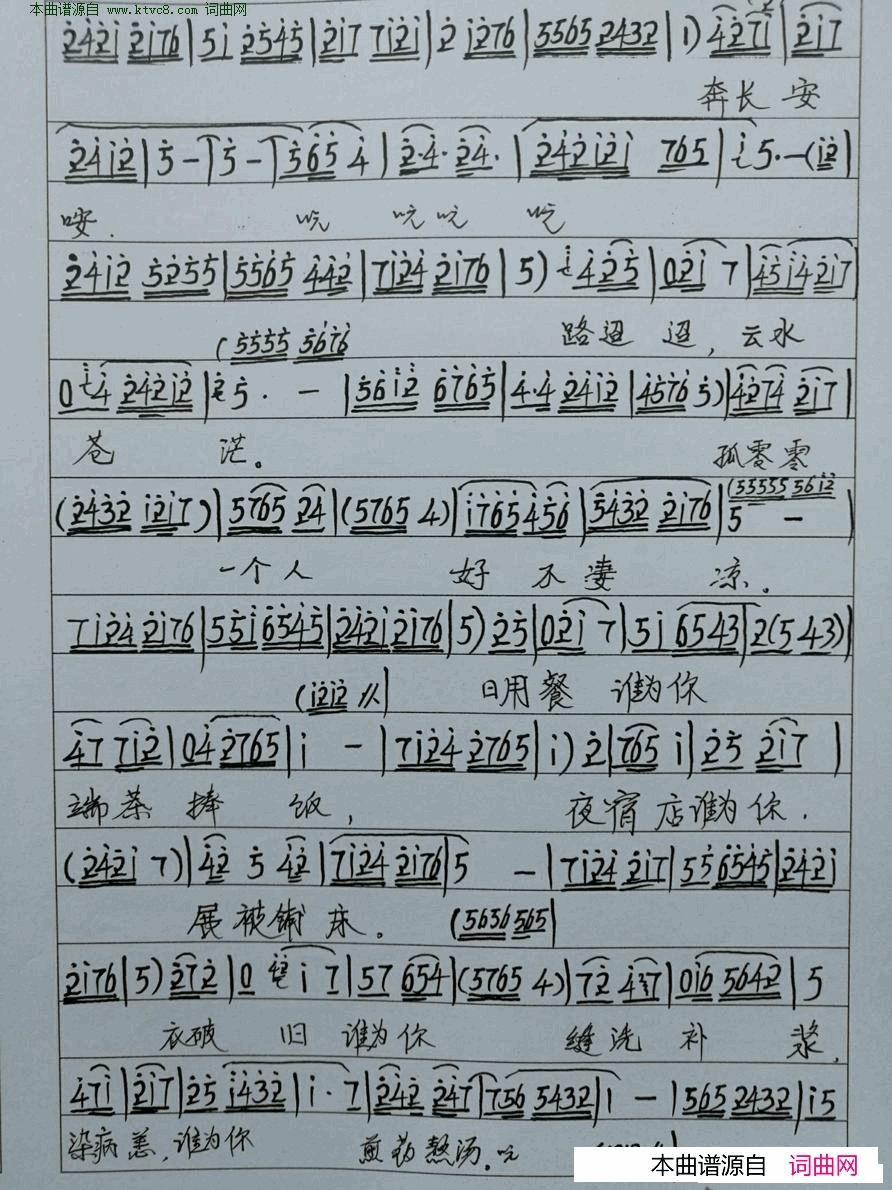 本曲谱源自
www.ktvc8.com 词曲网
2421 2176 | 51 2545 | 217 7121 | 2 1276 | 5565 2432 | 1) 4271 | 217
奔长安
2412 | 5 - | 5 - | 565 4 | 2·4· 24· | 242121 765 | 5·-(12 |
吃 吃吃 吃
2412 5255 | 5565 442 | 7124 2176 | 5) 425 | 021 7 | 4514217
(5555 5676 路迢迢,云水
0 4 24212 | 5· - | 5612 6765 | 4·4 2412 | 4576 5) | 4274 217 |
苍 茫。 孤零零
(2432 1217) | 5765 24 | (5765 4) | 1765456 | 5432 2176 | 5 - |
(55555 5612
一个人 好不凄凉。
7124 2176 | 5516545 | 24212176 | 5) 25 | 021 7 | 51 6543 | 2(5 43) |
(1212 〃| 日用餐 谁为你
47 712 | 04 2765 | 1 - | 7124 2765 | 1) 2 | 765 1 | 25 217 |
端茶捧饭, 夜宿店谁为你.
(2421 7) | 42 5 42 | 7124 2176 | 5 - | 7124 217 | 55 6545 | 2421
展被铺床。 (5656 565|
2176 | 5) 272 | 0 42 1 7 | 57 654 | (5765 4) | 72 437 | 016 5642 | 5
衣破旧谁为你 缝洗补浆,
471 | 217 | 25 1432 | 1· 7 | 242 247 | 756 5432 | 1 - | 565 2432 | 15
染病恙,谁为你 煎药熬汤。吃
本曲谱源自 词曲网